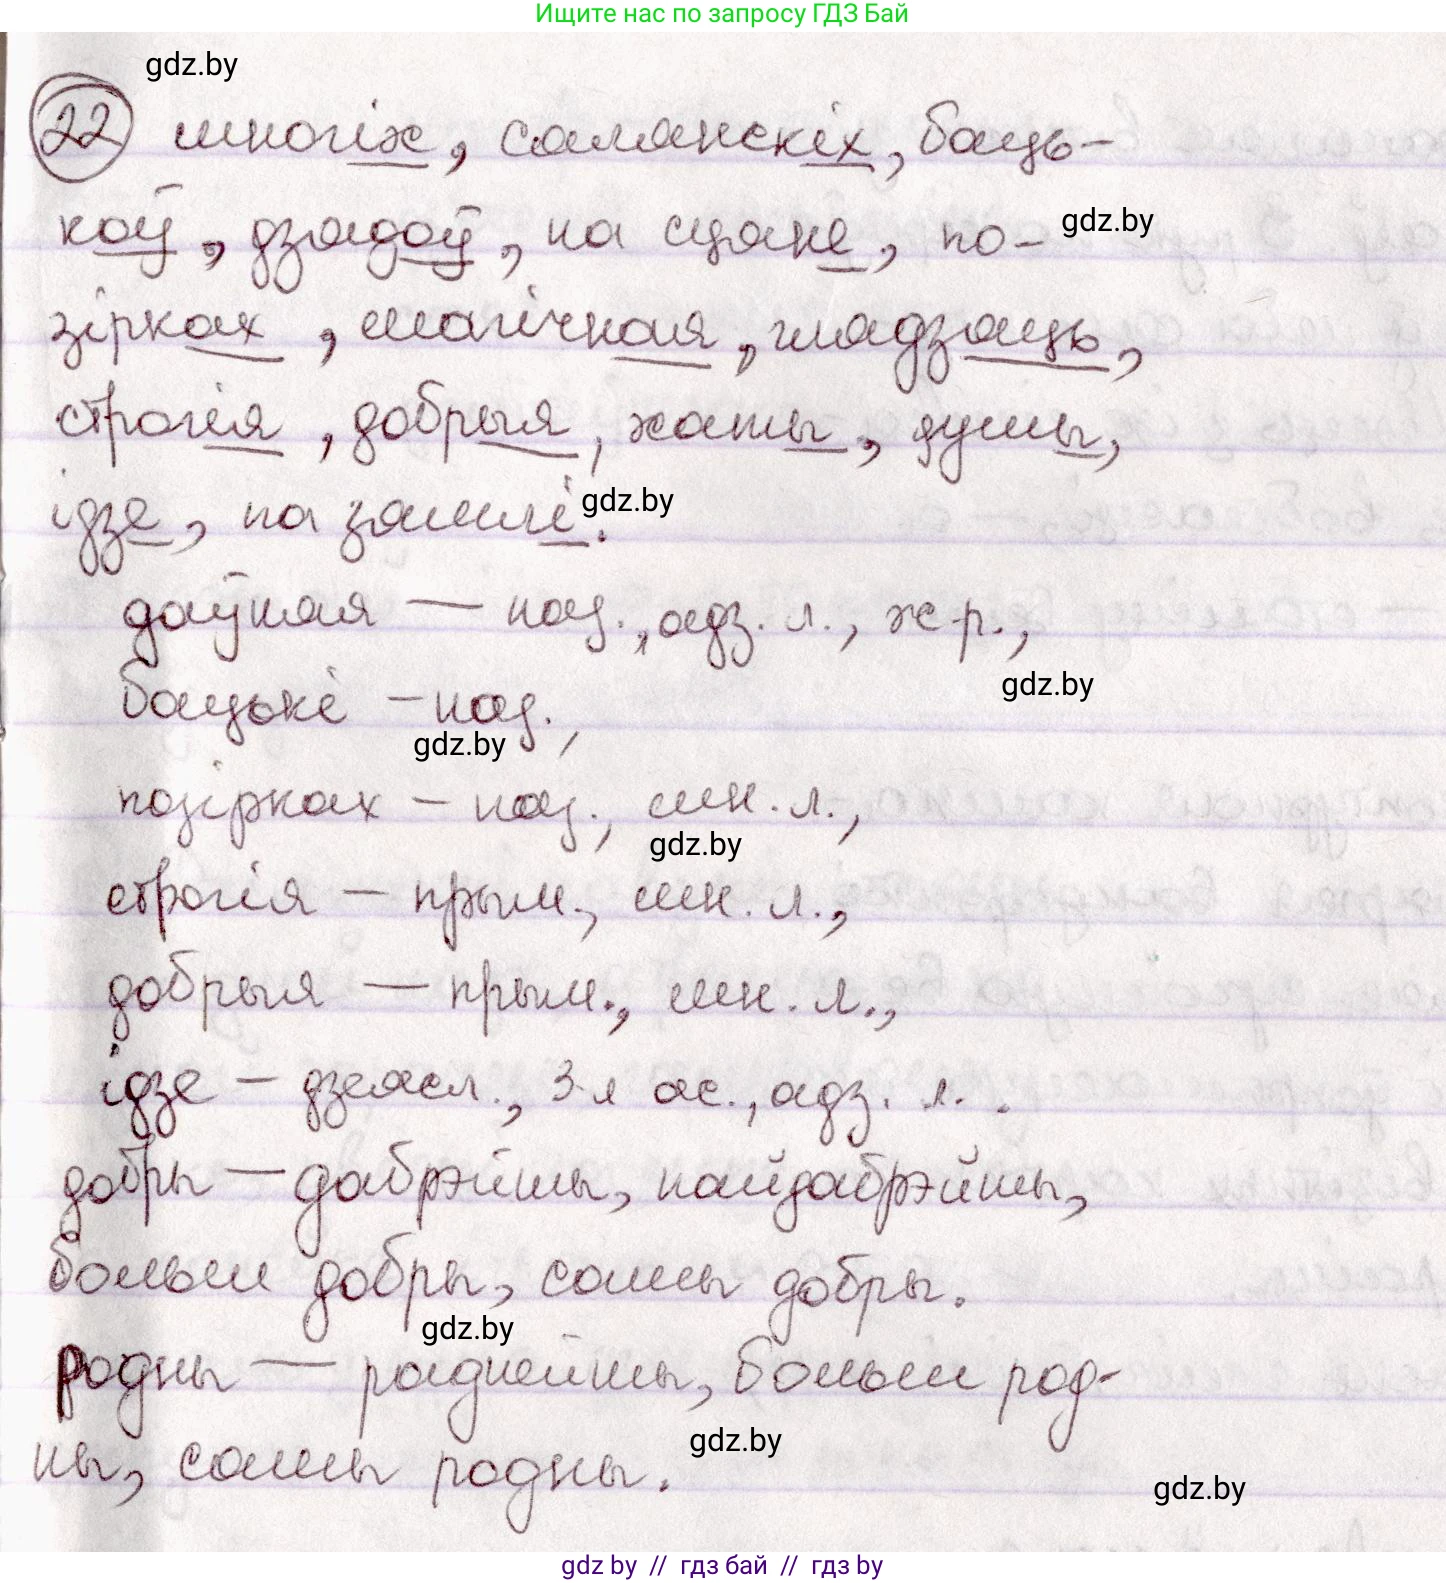 Ищите нас по запросу ГДЗ Бай
gdz.by
22 многіх, саманскіх, баць-
коў, дзядоў, на сцяне, по- gdz.by
зірках, магічная, глядзяць,
строгія, добрыя, хаты, душы,
ідзе, на зямлі. gdz.by
даўняя — наз., адз. л., ж.р.,
gdz.by
бацькі – наз.,
gdz.by
позірках – наз., мн. л.,
gdz.by
строгія – прым., мн. л.,
добрыя — прым., мн. л.,
ідзе – дзеясл., 3-я ас., адз. л.
добры — дабрэйшы, найдабрэйшы,
больш добры, самы добры.
gdz.by
родны — раднейшы, больш род-
ны, самы родны.
gdz.by
gdz.by
gdz by // гдз бай // гдз by